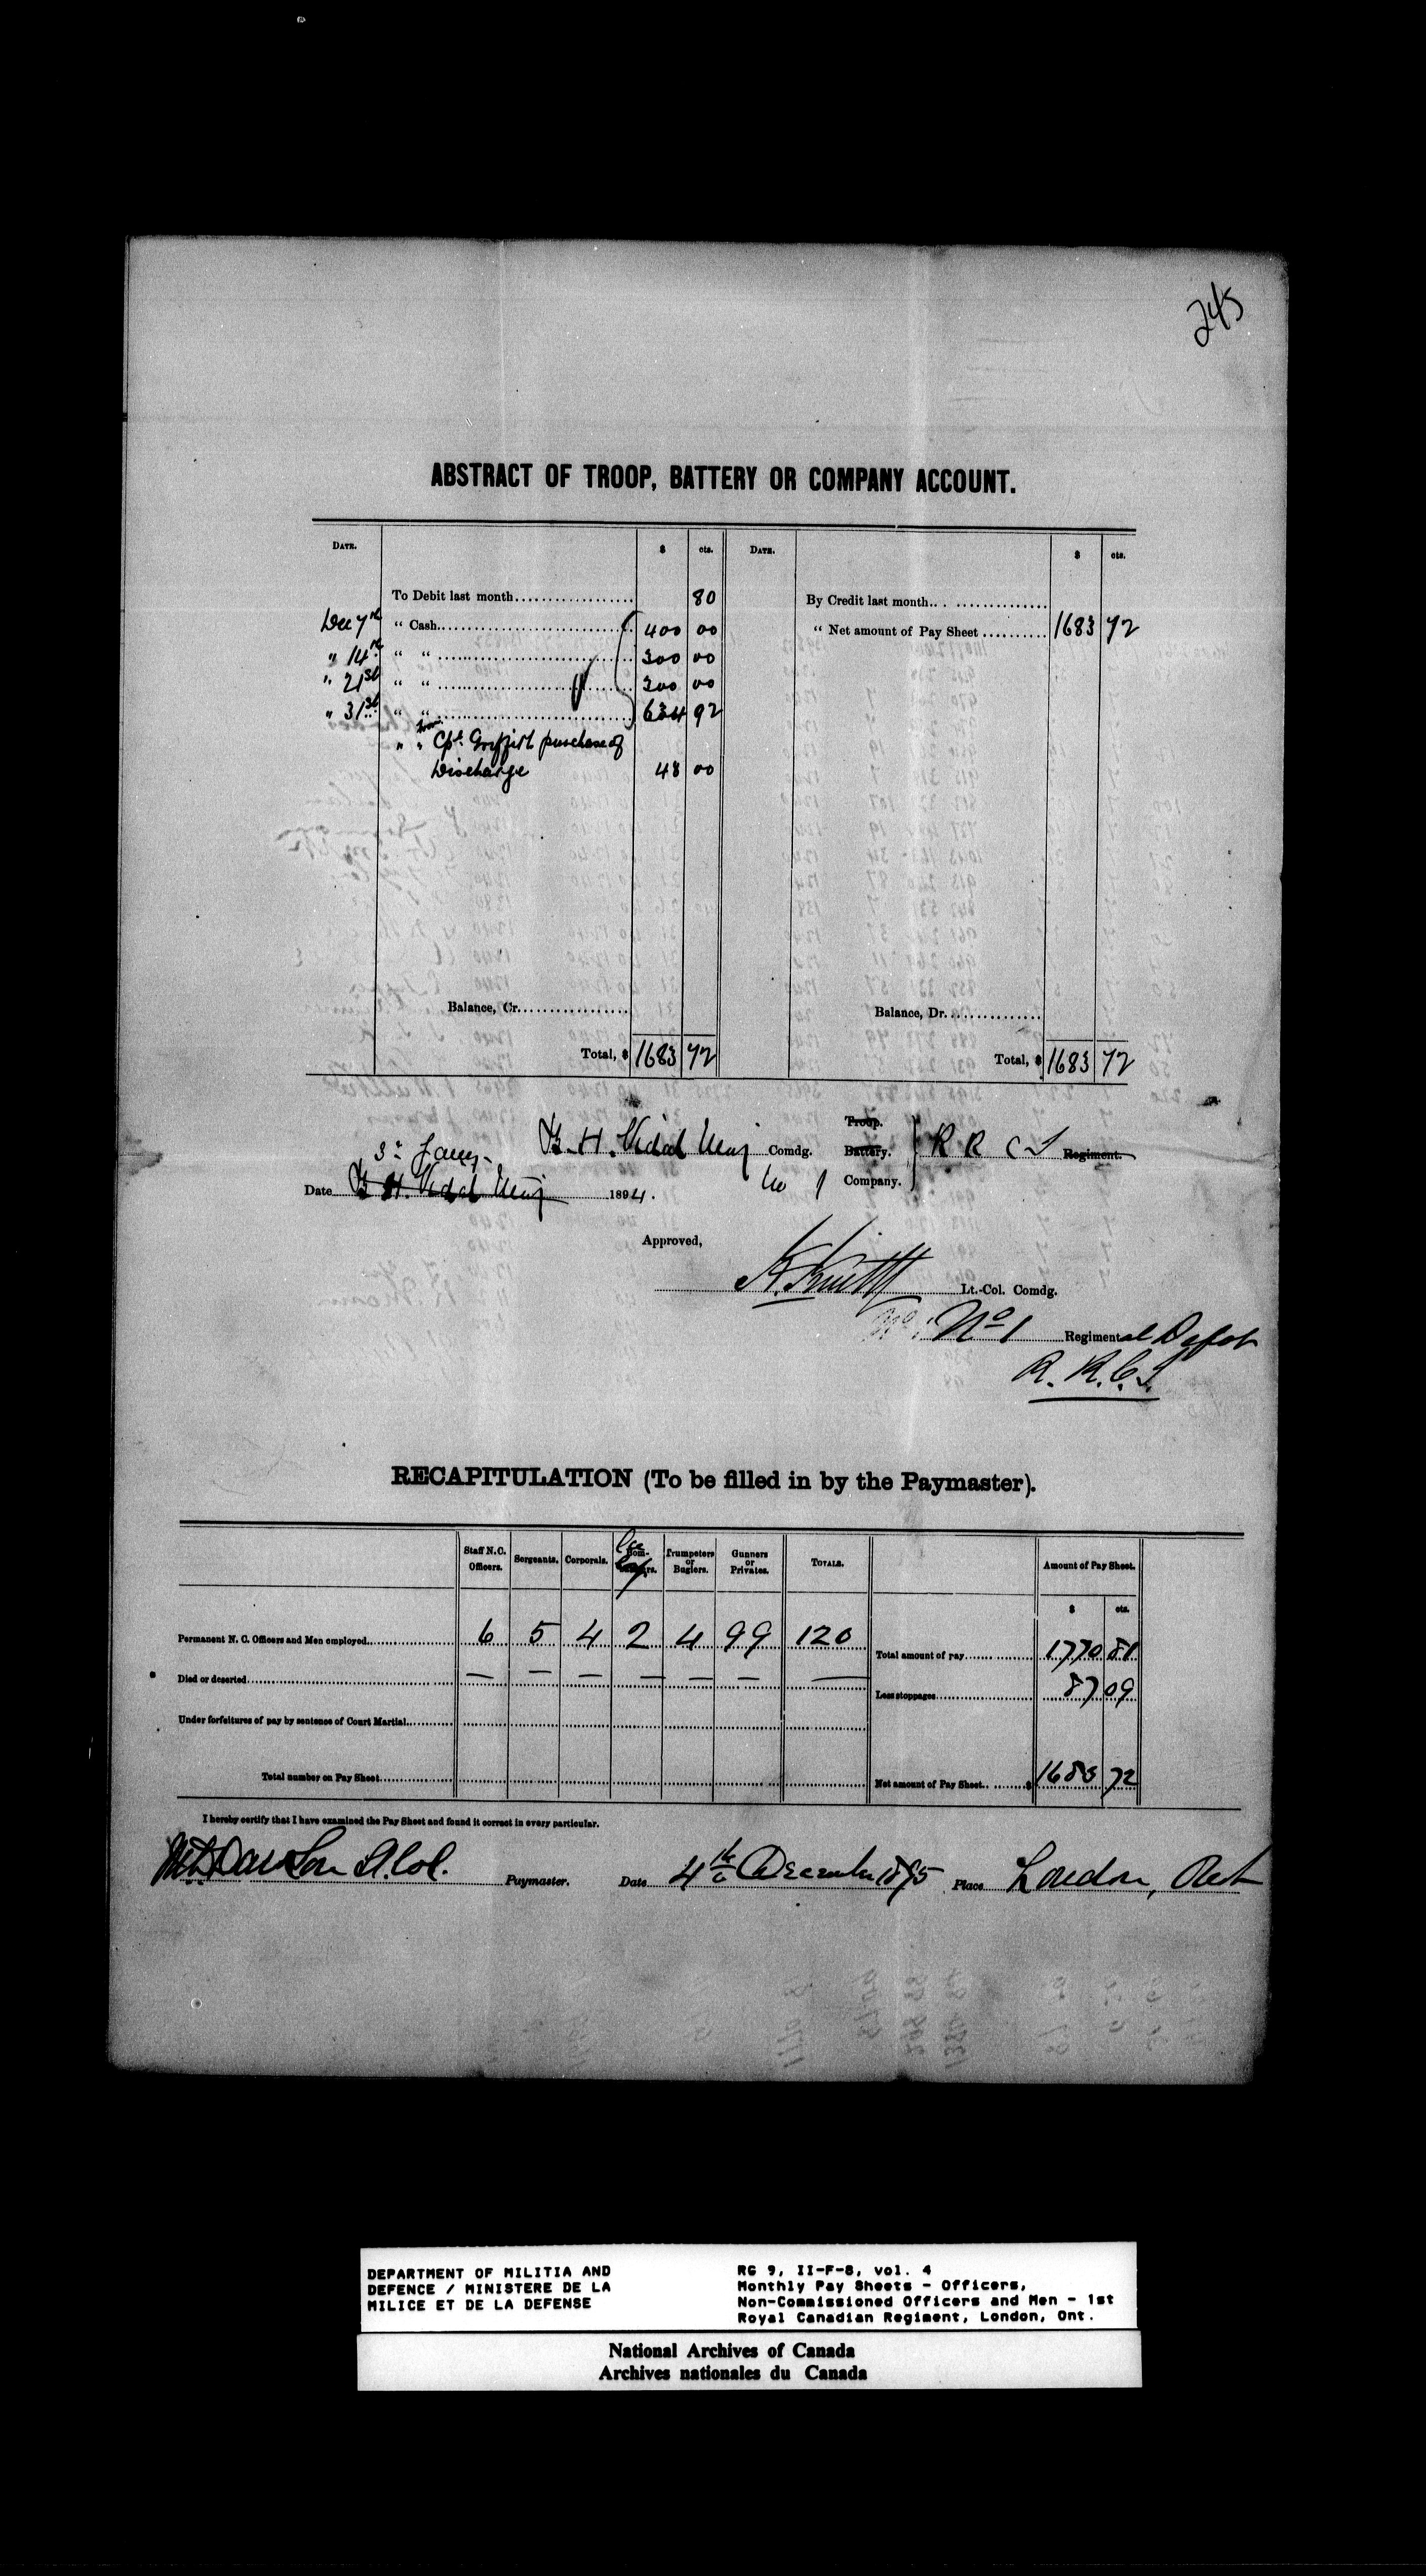 245
ABSTRACT OF TROOP, BATTERY OR COMPANY ACCOUNT.
DATE. $ cts. DATE. $ cts.
To Debit last month.................. 80 By Credit last month.. . ................
Dec 7th " Cash................................. 400 00 " Net amount of Pay Sheet .......... 1683 72
" 14th " " ................................. 300 00
" 21st " " ................................. 300 00
" 31st " " ................................. 634 92
" " Cpl. Griffith purchase of
Discharge 48 00
Balance, Cr................... Balance, Dr.................
Total, $ 1683 72 Total, $ 1683 72
B. H. Vidal Maj Comdg. Troop. Battery. No 1 Company. } R R C I Regiment.
3d Jany.
Date B. H. Vidal Maj 1894.
Approved,
Lt.-Col. Comdg.
No 1 Regimental Depot
R. R. C. I.
RECAPITULATION (To be filled in by the Paymaster).
Staff N.C. Officers. Sergeants. Corporals. Trumpeters or Buglers. Gunners or Privates. TOTALS. Amount of Pay Sheet.
$ cts.
Permanent N. C. Officers and Men employed...................... 6 5 4 2 4 99 120 Total amount of pay.................. 1770 81
Died or deserted.......................................................... — — — — — — — Less stoppages......................... 87 09
Under forfeitures of pay by sentence of Court Martial............
Total number on Pay Sheet................... Net amount of Pay Sheet.. ........$ 1683 72
I hereby certify that I have examined the Pay Sheet and found it correct in every particular.
Dawson Lt. Col. Paymaster. Date 4th December 1895 Place London, Ont
DEPARTMENT OF MILITIA AND
DEFENCE / MINISTERE DE LA
MILICE ET DE LA DEFENSE
RG 9, II-F-8, vol. 4
Monthly Pay Sheets - Officers,
Non-Commissioned Officers and Men - 1st
Royal Canadian Regiment, London, Ont.
National Archives of Canada
Archives nationales du Canada